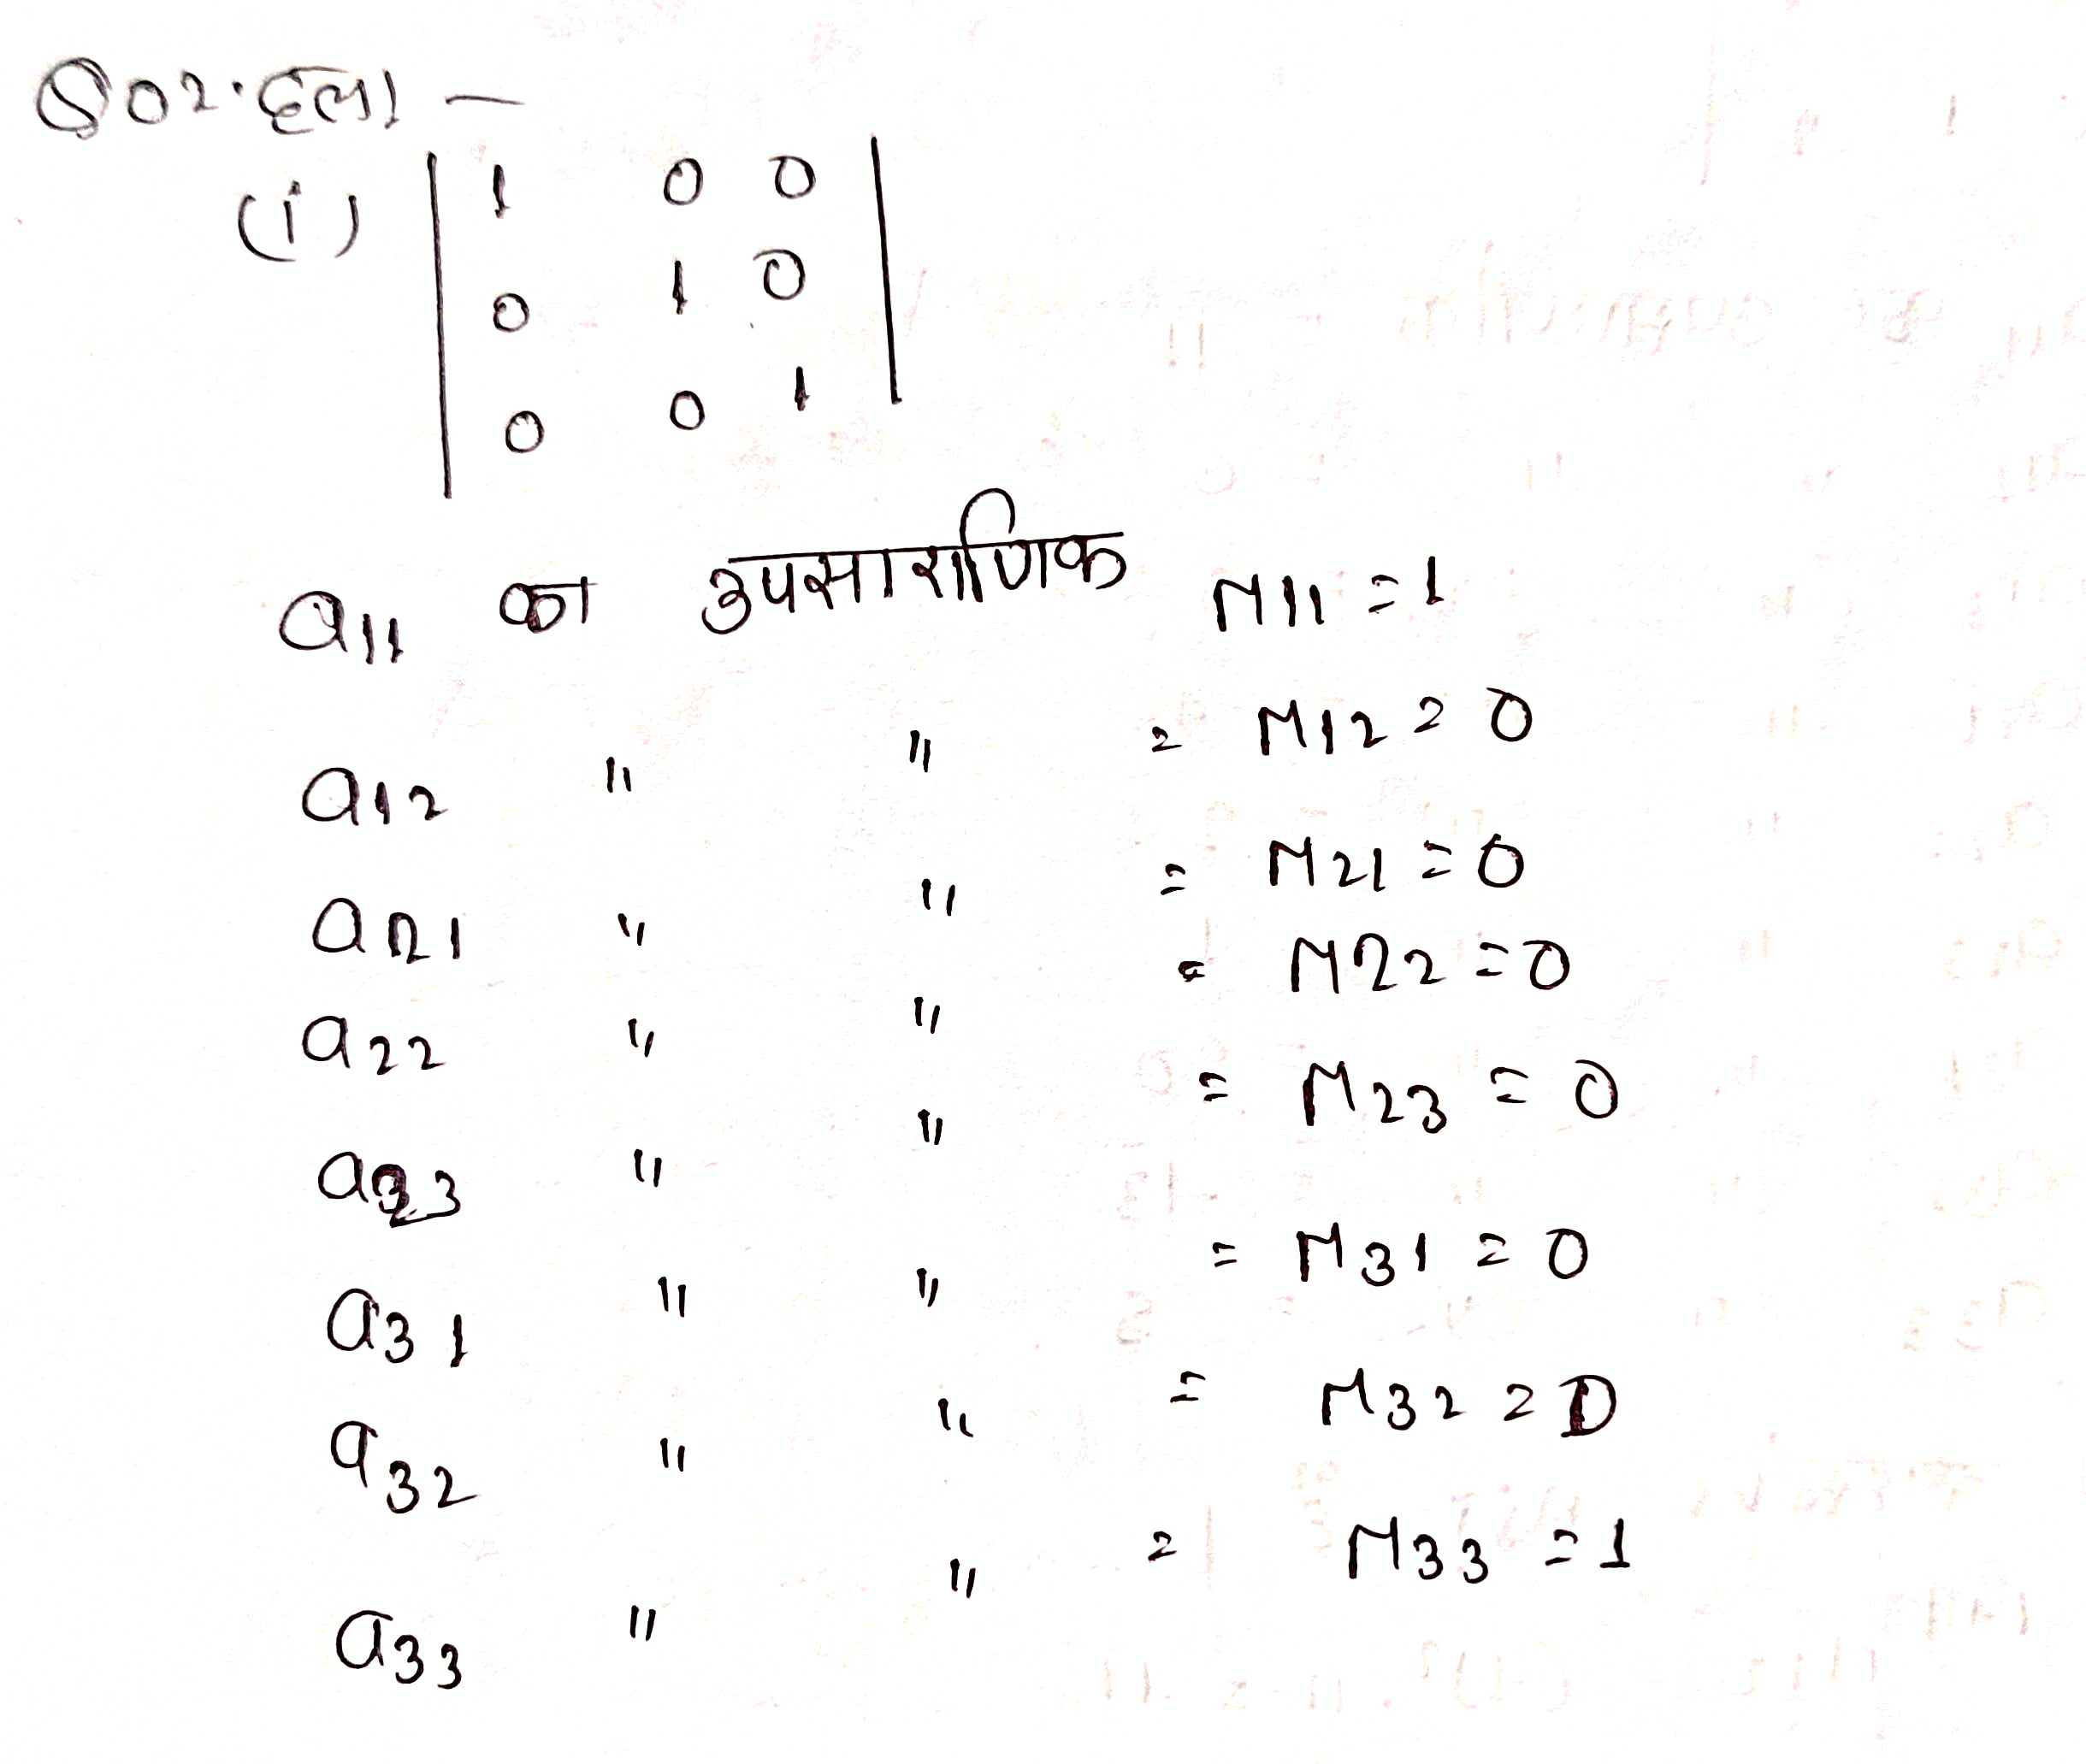 Q02. हल। —
(i) | 1 0 0 |
| 0 1 0 |
| 0 0 1 |
a11 का उपसारणिक M11 = 1
a12 " " = M12 = 0
a21 " " = M21 = 0
a22 " " = M22 = 0
a23 " " = M23 = 0
a31 " " = M31 = 0
a32 " " = M32 = 0
a33 " " = M33 = 1